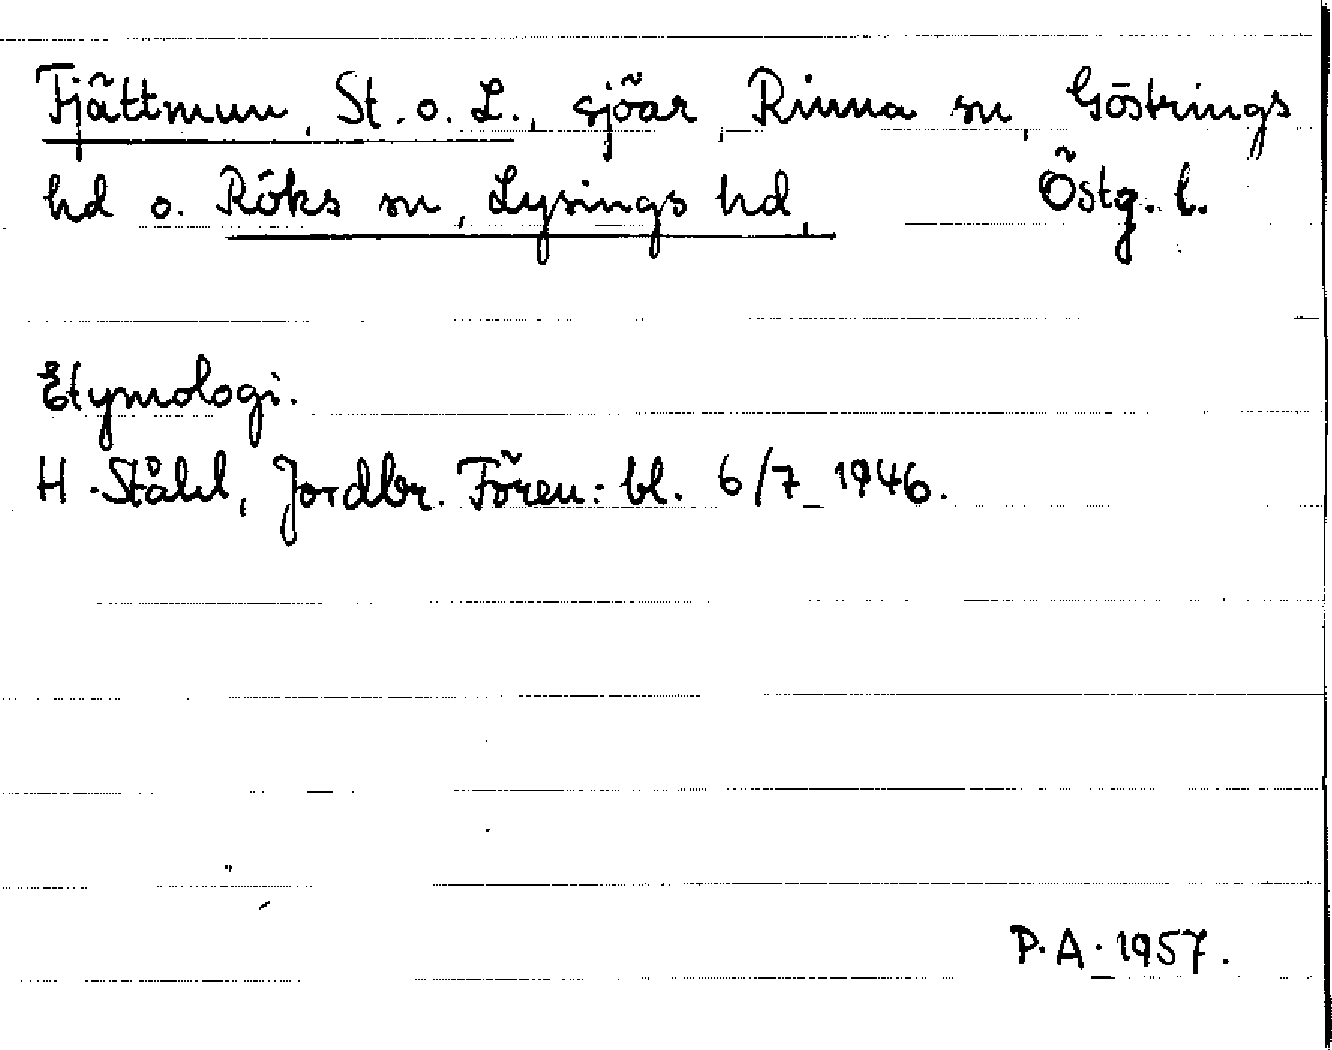 Fjättmun, St. o. L., sjöar, Rinna sn, Göstrings
hd o. Röks sn, Lysings hd, Östg. l.
Etymologi.
H. Ståhl, Jordbr. Fören:bl. 6/7 1946.
P. A. 1957.